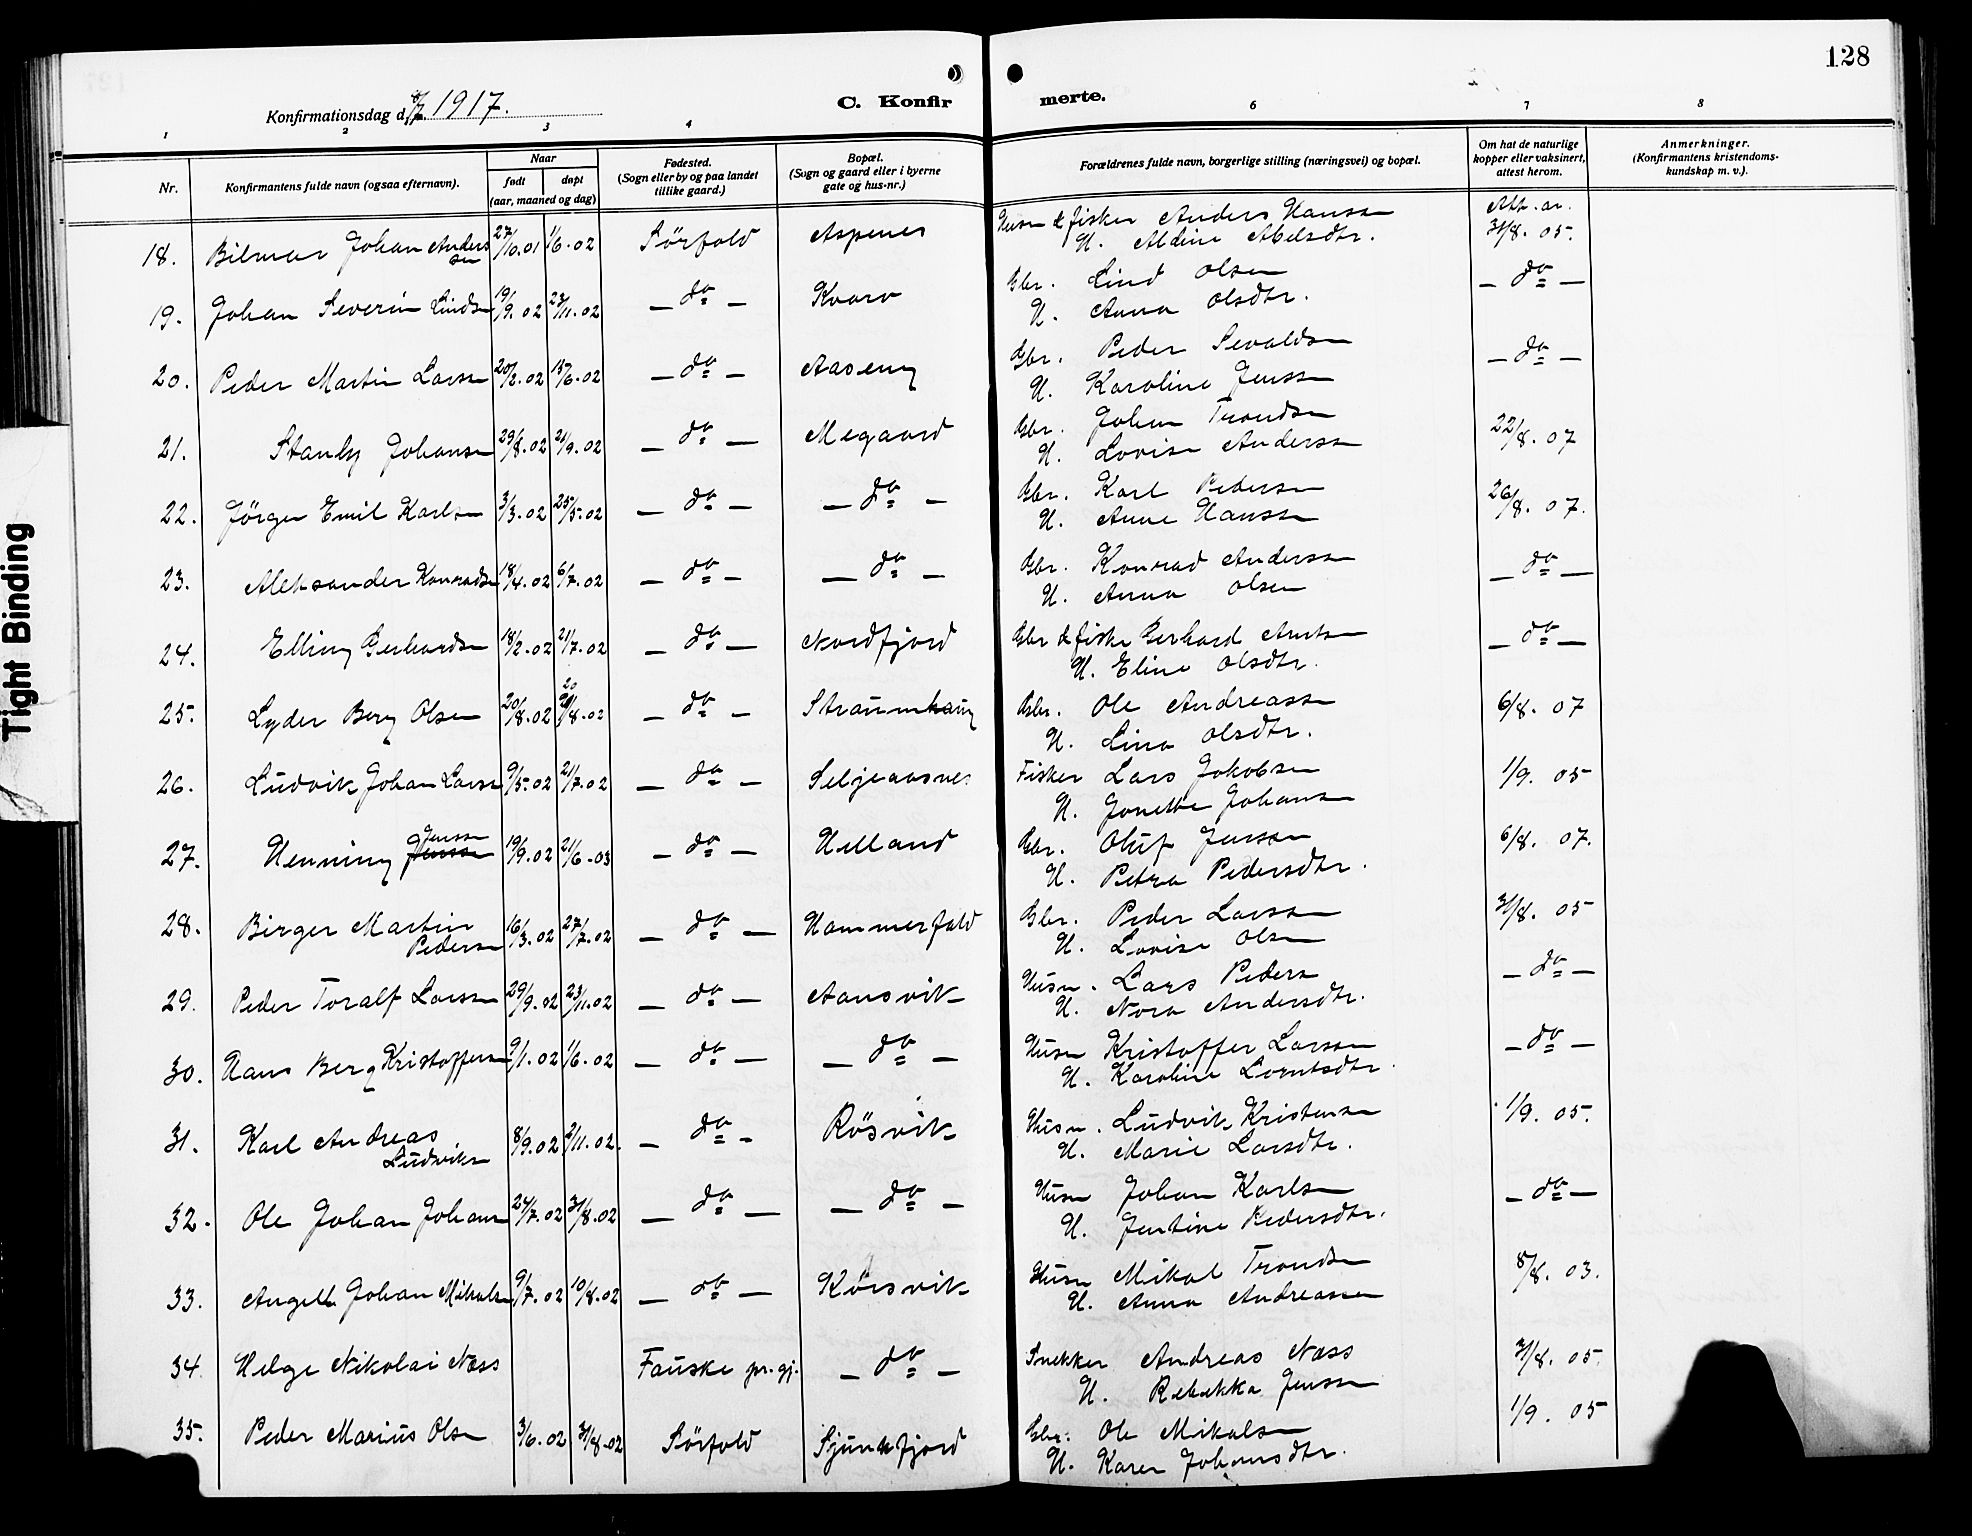 128
Konfirmationsdag d. 8/7 1917.
C. Konfirmerte.
1 2 3 4 6 7 8
Nr. Konfirmantens fulde navn (ogsaa efternavn). Naar født døpt (aar, maaned og dag) Fødested. (Sogn eller by og paa landet tillike gaard.) Bopæl. (Sogn og gaard eller i byerne gate og hus-nr.) Forældrenes fulde navn, borgerlige stilling (næringsvei) og bopæl. Om hat de naturlige kopper eller vaksinert, attest herom. Anmerkninger. (Konfirmantens kristendoms-kundskap m. v.).
18. Bilmar Johan Andersen 27/10.01 1/6.02 Sörfold Aspenes Husm & fisker Anders Hanssen 31/8. 05.
H. Aldine Abelsdtr.
19. Johan Severin Lindsen 19/9.02 23/11.02 – do – Kvarv Gbr. Lind Olsen – do –
H. Anna Olsdtr.
20. Peder Martin Larssen 20/2.02 15/6.02 – do – Aaseng Gbr. Peder Sevaldsen – do –
H. Karoline Jenssen
21. Stanly Johansen 29/8.02 21/9.02 – do – Megaard Gbr. Johan Trondsen 22/8. 07
H. Lovise Anderssen
22. Jörgen Emil Karlsen 3/3.02 25/5.02 – do – – do – Gbr. Karl Pedersen 26/8. 07.
H. Anne Hanssen
23. Aleksander Konradsen 18/4.02 6/7.02 – do – – do – Gbr. Konrad Anderssen – do –
H. Anna Olsen
24. Elling Gerhardsen 18/2.02 21/7.02 – do – Nordfjord Gbr & fisker Gerhard Arntsen – do –
H. Eline Olsdtr.
25. Lyder Berg Olsen 20/8.02 20/8.02 – do – Straumhaug Gbr. Ole Andreassen 6/8. 07
H. Lina Olsdtr.
26. Ludvik Johan Larsen 9/5.02 21/7.02 – do – Seljeaasnes Fisker Lars Jakobsen 1/9. 05
H. Jonette Johansen
27. Henning Jenssen 19/9.02 21/6.03 – do – Helland Gbr. Oluf Jenssen 6/8. 07.
H. Petra Pedersdtr.
28. Birger Martin Pedersen 16/3.02 27/7.02 – do – Hammerfald Gbr. Peder Larssen 31/8. 05
H. Lovise Olsen
29. Peder Toralf Larssen 29/9.02 23/11.02 – do – Aansvik Husm. Lars Peders – do –
H. Nora Andersdtr.
30. Hans Berg Kristoffersen 9/1.02 1/6.02 – do – – do – Husm Kristoffer Larssen – do –
H. Karoline Lorntsdtr.
31. Karl Andreas Ludviksen 8/9.02 2/11.02. – do – Rösvik Husm. Ludvik Kristensen 1/9. 05.
H. Marie Larsdtr.
32. Ole Johan Johansen 24/7.02 31/8.02 – do – – do – Husm Johan Karlsen – do –
H. Jentine Pedersdtr.
33. Angell Johan Mikalsen 9/7.02 10/8.02 – do – Körsvik Husm Mikal Trondsen 8/8. 03.
H. Anna Andreassen
34. Helge Nikolai Næss Fauske pr.gj. – do – Snekker Andreas Næss 31/8. 05.
H. Rebekka Jenssen
35. Peder Marius Olsen 3/6.02 31/8.02 Sörfold Sjunkfjord Gbr. Ole Mikalsen 1/9. 05
H. Karen Johansdtr.
Tight Binding